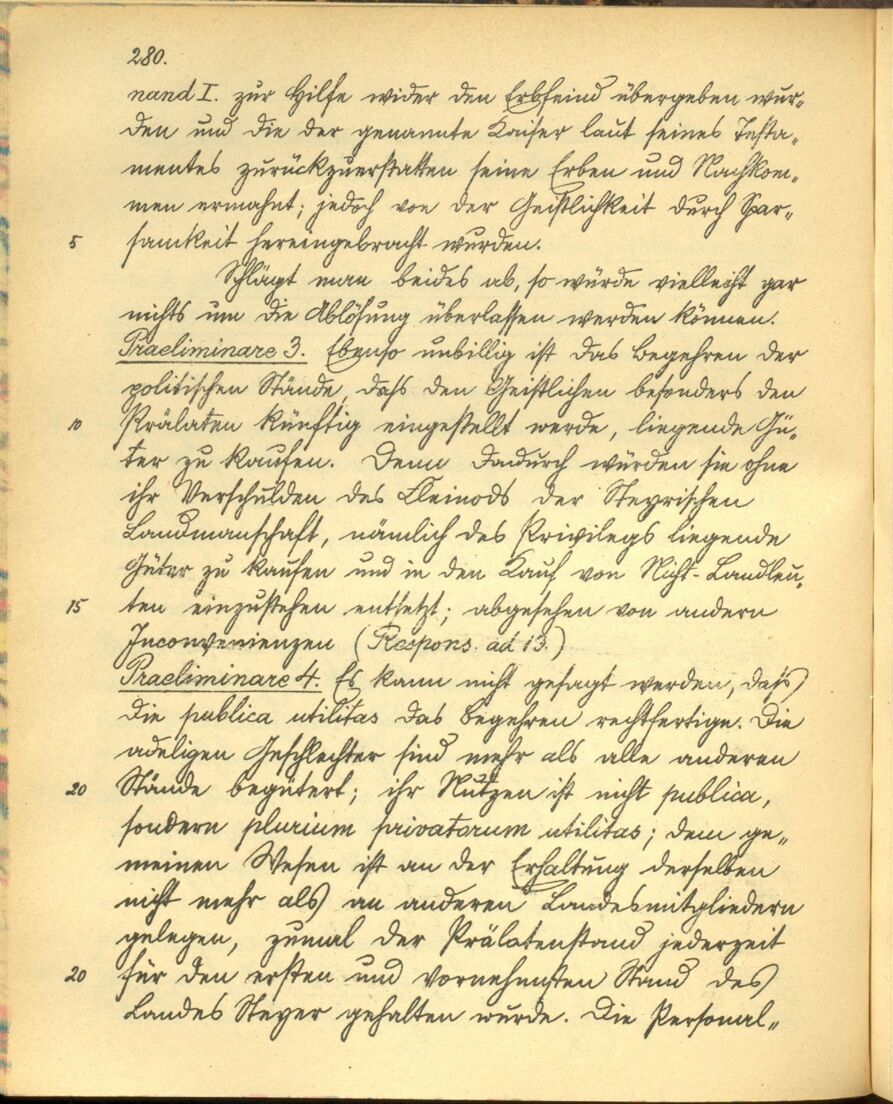 280.
nand I. zur Hilfe wider den Erbfeind übergeben wur„
den und die der genannte Kaiser laut seines Testa„
mentes zurückzuerstatten seine Erben und Nachkom„
men ermahnt; jedoch von der Geistlichkeit durch Spar„
5 samkeit hereingebracht wurden.
Schlägt man beides ab, so würde vielleicht gar
nichts um die Ablösung überlassen werden können.
Praeliminare 3. Ebenso unbillig ist das Begehren der
politischen Stände, dass den Geistlichen besonders den
10 Prälaten künftig eingestellt werde, liegende Gü„
ter zu kaufen. Denn dadurch würden sie ohne
ihr Verschulden des Kleinods der Steyrischen
Landmanschaft, nämlich des Privilegs liegende
Güter zu kaufen und in den Kauf von Nicht-Landleu„
15 ten einzustehen entsetzt; abgesehen von andern
Inconvenienzen (Respons. ad 13.)
Praeliminare 4. Es kann nicht gesagt werden, dass
die publica utilitas das Begehren rechtfertige. Die
adeligen Geschlechter sind mehr als alle anderen
20 Stände begütert; ihr Nutzen ist nicht publica,
sondern plurium privatorum utilitas; dem ge„
meinen Wesen ist an der Erhaltung derselben
nicht mehr als an anderen Landesmitgliedern
gelegen, zumal der Prälatenstand jederzeit
20 für den ersten und vornehmsten Stand des
Landes Steyer gehalten wurde. Die Personal„